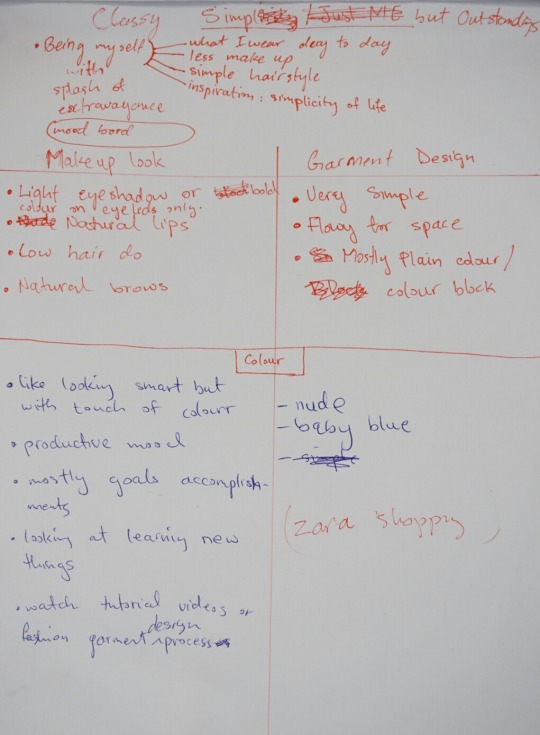 Classy Simple Just ME but Outstanding
• Being myself
with
splash of
extravagance
what I wear day to day
less make up
simple hairstyle
inspiration: simplicity of life
mood board
Makeup look
• Light eyeshadow or bold
colour on eyelids only.
• Natural lips
• Low hair do
• Natural brows
Garment Design
• Very Simple
• Flowy for space
• Mostly Plain colour/
Block colour block
Colour
• like looking smart but
with touch of colour
• productive mood
• mostly goals accomplish-
ments
• looking at learning new
things
• watch tutorial videos or
fashion garment design process
- nude
- baby blue
- simple
(zara shoppy)